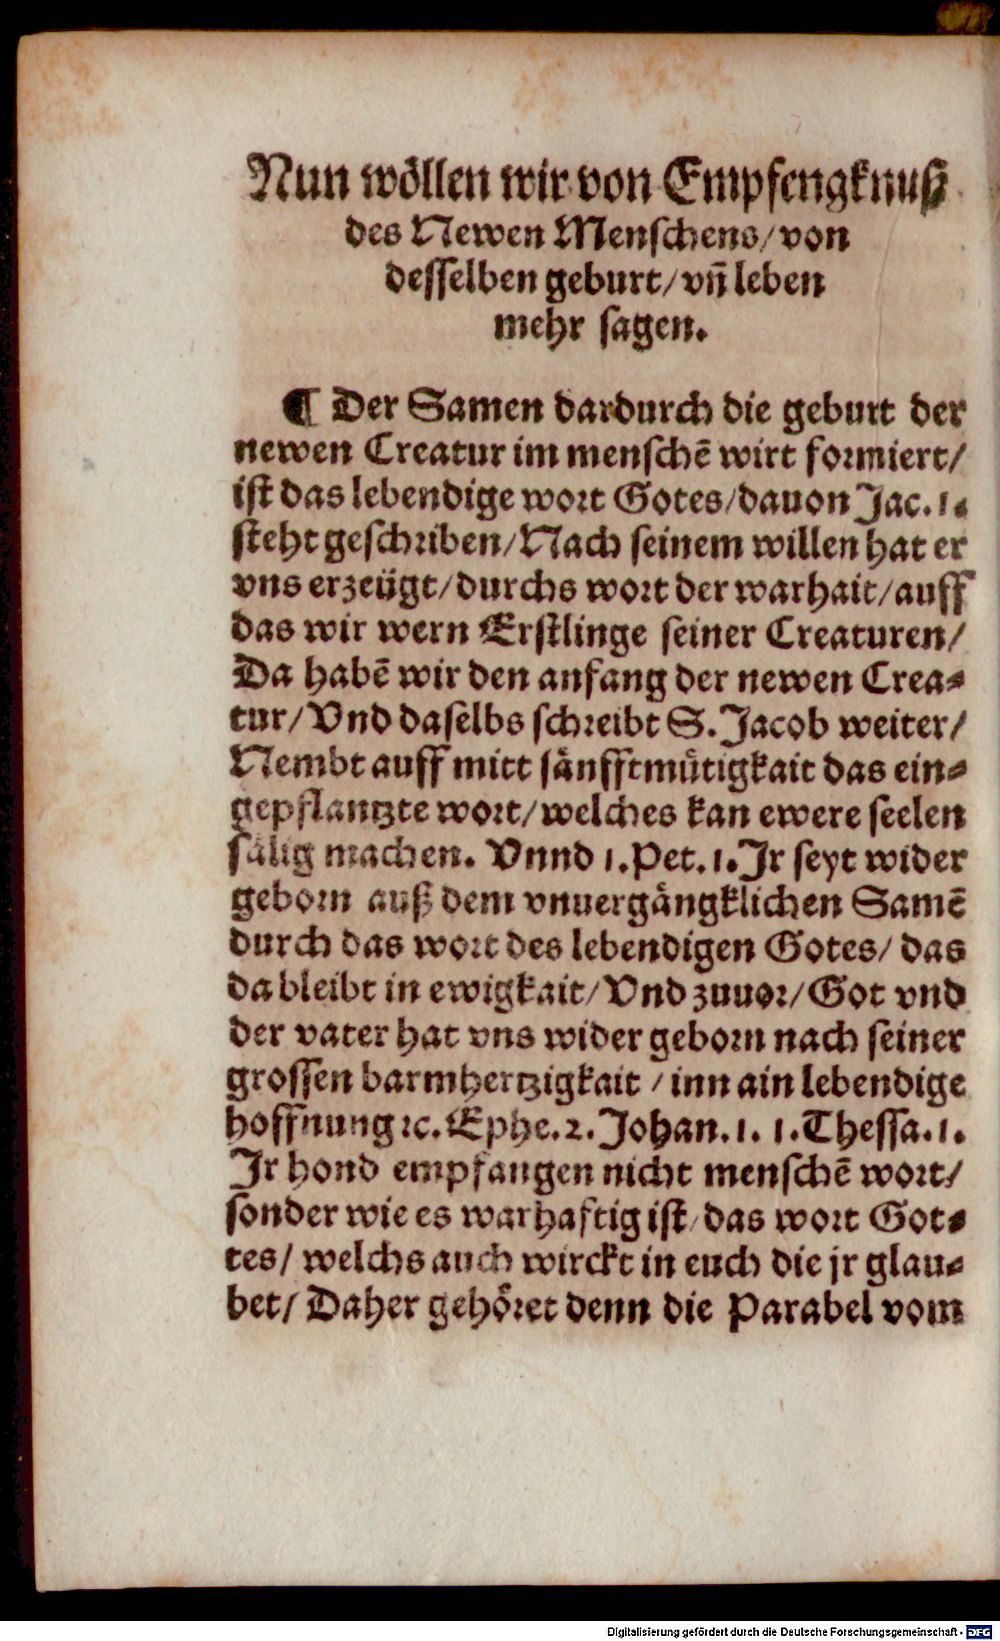 Nun wöllen wir von Empfengknuß
des Newen Menschens/ von
desselben geburt/ vn̄ leben
mehr sagen.
¶ Der Samen dardurch die geburt der
newen Creatur im menschē wirt formiert/
ist das lebendige wort Gotes/ dauon Jac. 1.
steht geschriben/ Nach seinem willen hat er
vns erzeügt/ durchs wort der warhait/ auff
das wir wern Erstlinge seiner Creaturen/
Da habē wir den anfang der newen Crea⸗
tur/ Vnd daselbs schreibt S. Jacob weiter/
Nembt auff mitt sänfftmütigkait das ein⸗
gepflantzte wort/ welches kan ewere seelen
sälig machen. Vnnd 1. Pet. 1. Jr seyt wider
geborn auß dem vnuergängklichen Samē
durch das wort des lebendigen Gotes/ das
da bleibt in ewigkait/ Vnd zuuor/ Got vnd
der vater hat vns wider geborn nach seiner
grossen barmhertzigkait / inn ain lebendige
hoffnung ꝛc. Ephe. 2. Johan. 1. 1. Thessa. 1.
Jr hond empfangen nicht menschē wort/
sonder wie es warhaftig ist/ das wort Got⸗
tes/ welchs auch wirckt in euch die jr glau⸗
bet/ Daher gehöret denn die Parabel vom
Digitalisierung gefördert durch die Deutsche Forschungsgemeinschaft - DFG